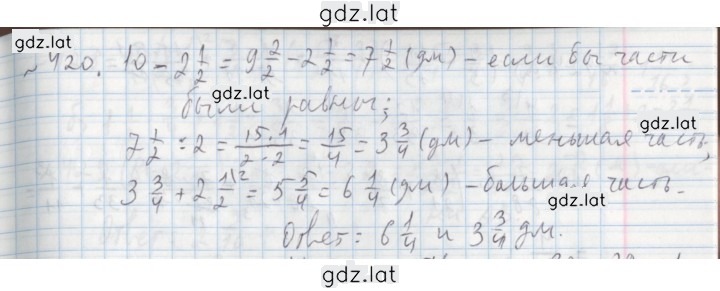 gdz.lat
gdz.lat
№ 420. 10 - 2 1/2 = 9 2/2 - 2 1/2 = 7 1/2 (дм) - если бы части
были равны;
gdz.lat
7 1/2 : 2 = 15·1/2·2 = 15/4 = 3 3/4 (дм) - меньшая часть,
3 3/4 + 2 1\2/2 = 5 5/4 = 6 1/4 (дм) - большая часть.
Ответ: 6 1/4 и 3 3/4 дм.
gdz.lat